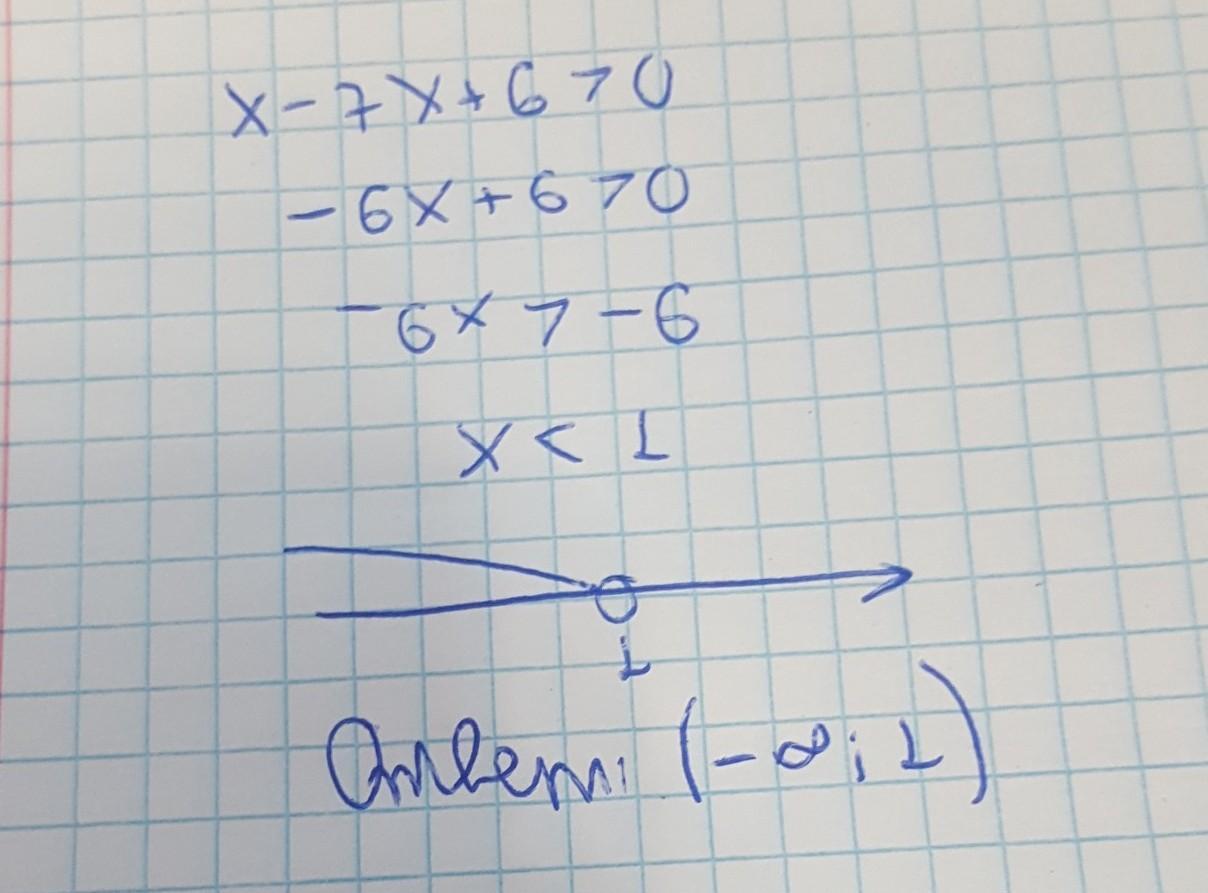 x-7x+6>0
-6x+6>0
-6x>-6
x<1
1
Ответ: (-∞; 1)